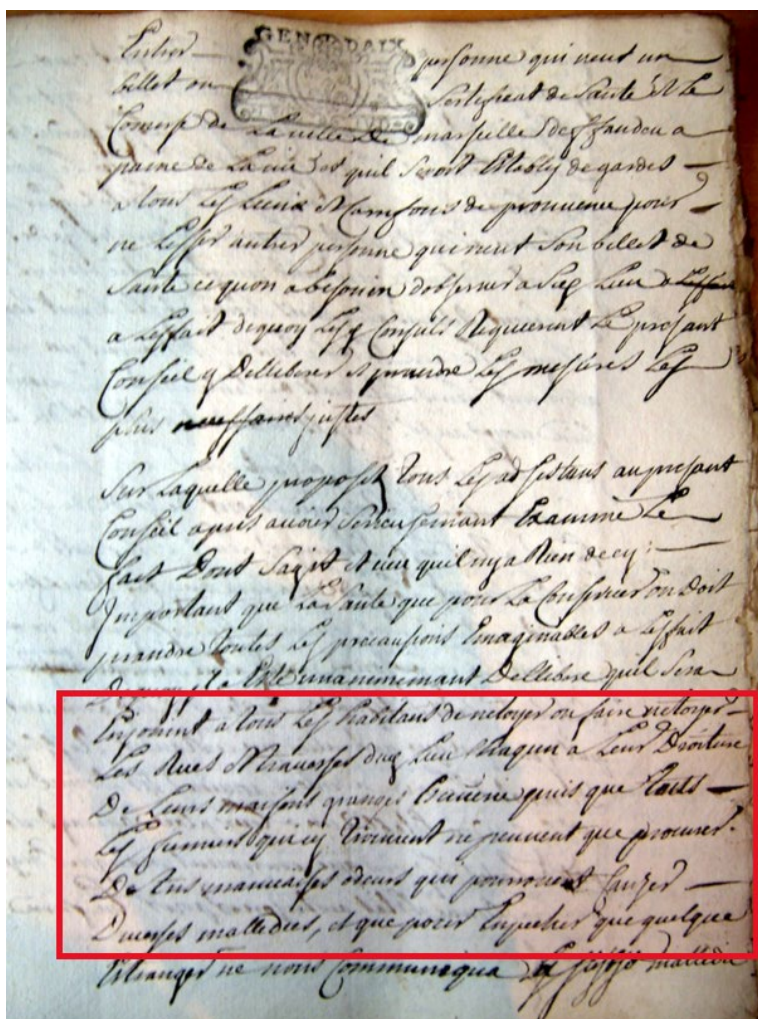 GEN DAIX
Entrer personne qui neut un
billet ou Sertificat de Sante Et le
Comerse de La ville De marseille deffandeu a
paine de La vie et quil seroit Estably de gardes
a tous Les Lieux Et de prouvence pour
ne Lesser autrer personne qui neut Son billet de
Sante ce quon a besouin dobserver a Lieu a
a Leffait de quoy Les Consuls Requierent Le presant
Conseil Delliberer Et prandre Les mesures Les
plus justes
Sur Laquelle propose tous Les adsistans au presant
Conseil apres avoir Serieusemant Examine Le
fait Dont Sagit et veu quil ny a Rien de cy
Important que La Sante que pour La Conserver on Doit
prandre toutes Les precausions Imaginables a Leffait
De quoy a Este unanimemant Dellibere quil Sera
Enjoint a tous Les habitans de netoyer ou faire netoyer
Les Rues Et traverses dud Lieu Chaqun a Leur Droiture
De Leurs maisons granges puis que touts
Les fumiers qui cy trouvent ne peuvent que procurer
De tres mauvaises odeurs qui pourroient Cauzer
Diverses malledies, et que pour Empecher que quelque
Estranger ne nous Communiqua malledie